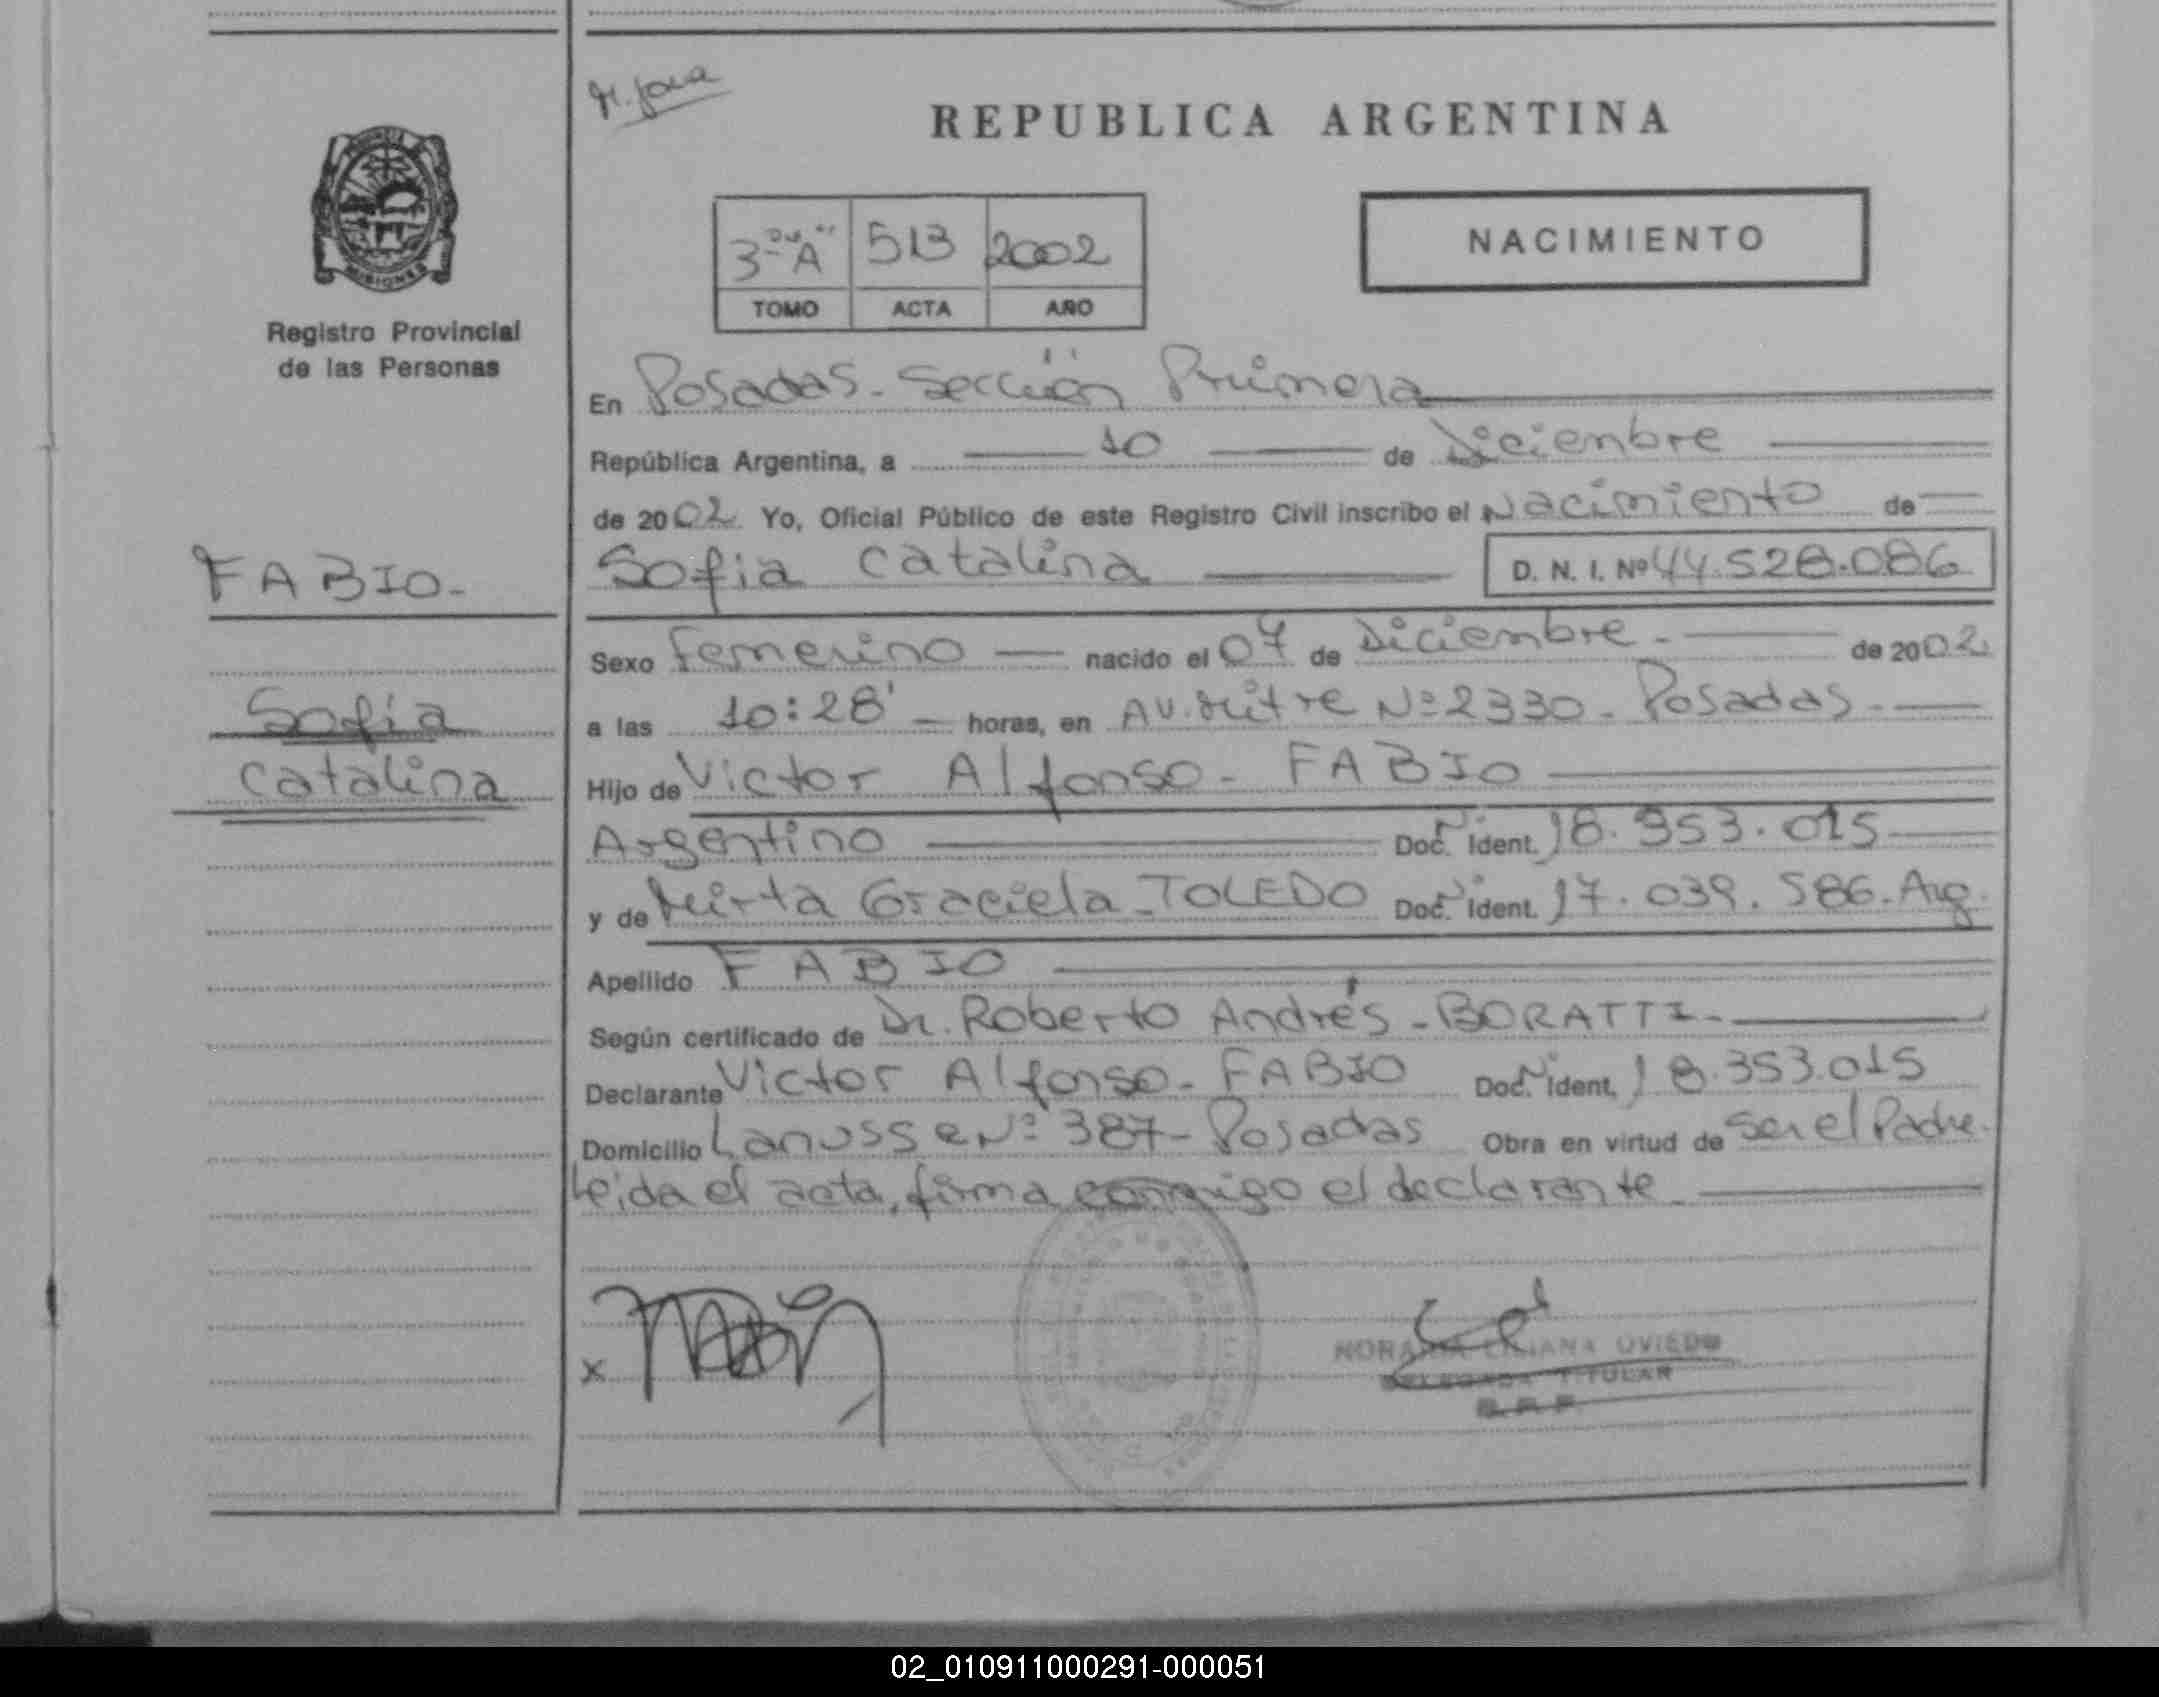 REPUBLICA ARGENTINA
PROVINCIA
MISIONES
Registro Provincial
de las Personas
3º "A" 513 2002
TOMO ACTA AÑO
NACIMIENTO
En Posadas - Sección Primera
República Argentina, a 10 de Diciembre
de 2002 Yo, Oficial Público de este Registro Civil inscribo el Nacimiento de
FABIO.-
Sofia Catalina D. N. I. Nº 44.528.086
Sexo femenino nacido el 07 de Diciembre - de 2002
Sofia
a las 10:28' horas, en Av. Mitre Nº 2330 - Posadas -
Catalina
Hijo de Victor Alfonso - FABIO
Argentino Doc. Ident. 18.353.015
y de Mirta Graciela - TOLEDO Doc. Ident. 17.039.586 - Arg.
Apellido FABIO
Según certificado de Dr. Roberto Andrés - BORATTI -
Declarante Victor Alfonso - FABIO Doc. Ident. 18.353.015
Domicilio Lanusse Nº 387 - Posadas Obra en virtud de Ser el Padre.
Leida el acta, firma conmigo el declarante.
x
LILIANA OVIEDO
DELEGADA TITULAR
02_010911000291-000051